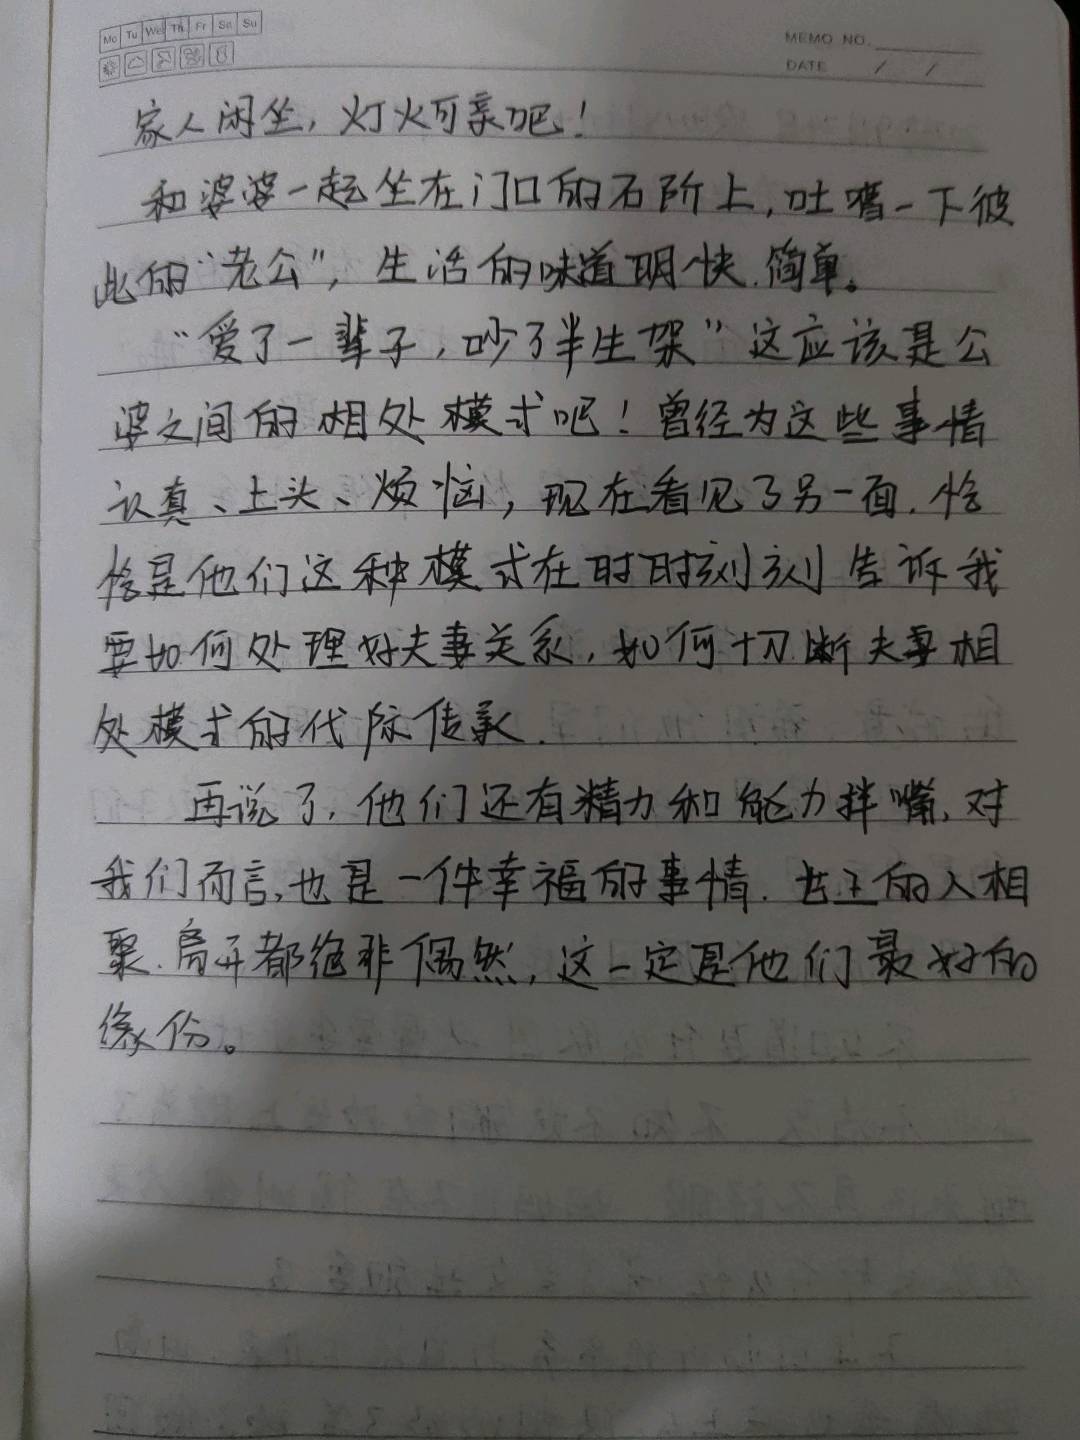 Mo Tu We Th Fr Sa Su
MEMO NO.
DATE / /
家人闲坐，灯火可亲吧！
和婆婆一起坐在门口的石阶上，吐嘈一下彼
此的“老公”，生活的味道明快.简单。
“爱了一辈子，吵了半生架”这应该是公
婆之间的相处模式吧！曾经为这些事情
认真、上头、烦恼，现在看见了另一面.恰
恰是他们这种模式在时时刻刻告诉我
要如何处理好夫妻关系，如何切断夫妻相
处模式的代际传承.
再说了，他们还有精力和能力拌嘴，对
我们而言，也是一件幸福的事情.的人相
聚.离开都绝非偶然，这一定是他们最好的
缘份。